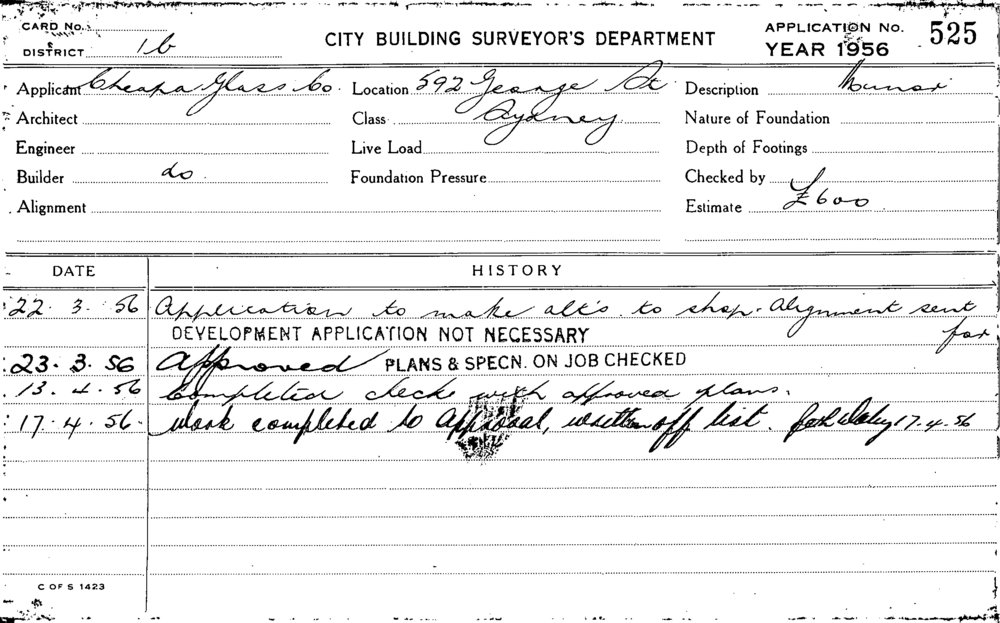 CARD No.
DISTRICT 1b
CITY BUILDING SURVEYOR'S DEPARTMENT
APPLICATION No. 525
YEAR 1956
Applicant Cheapa Glass Co. Location 592 George St Description Minor
Architect Class Sydney Nature of Foundation
Engineer Live Load Depth of Footings
Builder do Foundation Pressure Checked by
Alignment Estimate £600
DATE HISTORY
22. 3. 56 Application to make alt's to shop. Alignment sent
for
DEVELOPMENT APPLICATION NOT NECESSARY
23. 3. 56 Approved PLANS & SPECN. ON JOB CHECKED
13. 4. 56 Completed check with approved plans.
17. 4. 56. Work completed to approval, written off list. 17.4.56
C OF S 1423